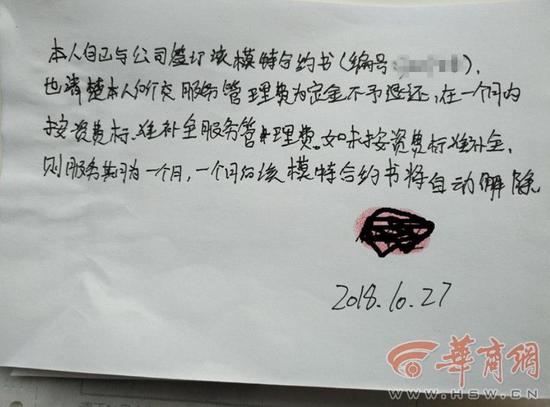 本人自己与公司签订该模特合约书(编号
),
也清楚本人所交服务管理费为定金不予退还,在一个月内
按资费标准补全服务管理费.如未按资费标准补全,
则服务期为一个月,一个月后该模特合约书将自动解除
2018.10.27
華商網
WWW.HSW.CN